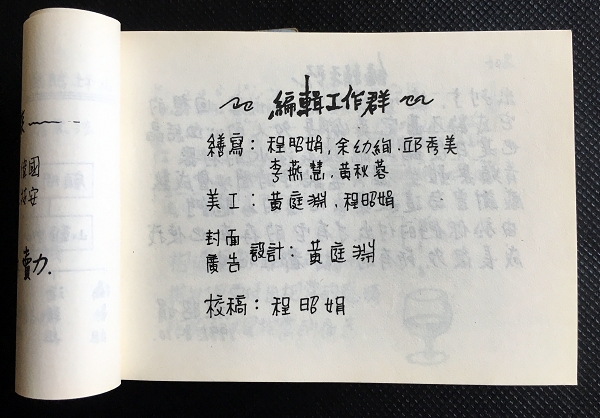 編輯工作群
繕寫：程昭娟，余幼絢．邱秀美
李燕慧，黃秋蓉
美工：黃庭淵，程昭娟
封面
廣告 設計：黃庭淵
校稿：程昭娟
國
安
賣力.